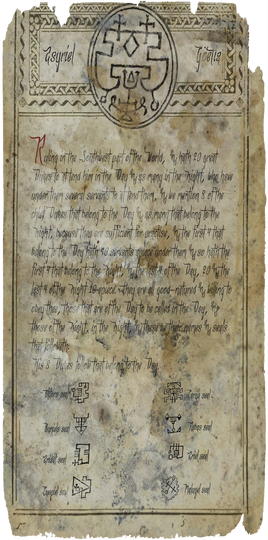 Asyriel
Goetia
Ruling on the Southwest part of the World, & hath 20 great
Dukes to attend him in the Day & as many in the Night, who have
under them several servants to attend them, & we mention 8 of the
chief Dukes that belong to the Day & as many that belong to the
Night, because they are sufficient for practise, & the first 4 that
belong to the Day hath 40 servants apiece under them & so hath the
first 4 that belong to the Night, & the last 4 of the Day, 20 & the
last 4 of the Night 10 apiece. They are all good-natured & willing to
obey thee, those that are of the Day to be called in the Day, &
those of the Night, in the Night, & these be their names & seals
that followeth.
The 8 Dukes follow that belong to the Day.
seal seal
seal seal
seal seal
seal seal